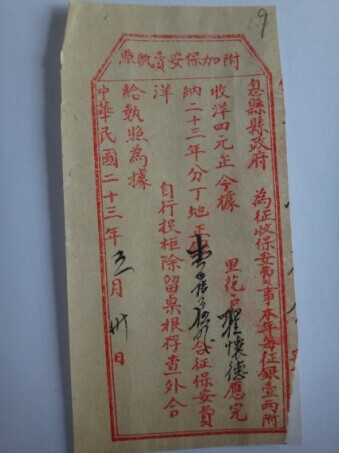 附加保安費執照
息縣縣政府 為征收保安費事本年每征銀壹兩附
收洋四元正 今據 里花戶 懷德應完
納二十三年分丁地正 合征保安費
洋 自行投柜除留票根存查外合
給執照為據
中華民國二十三年 五月卅日
9